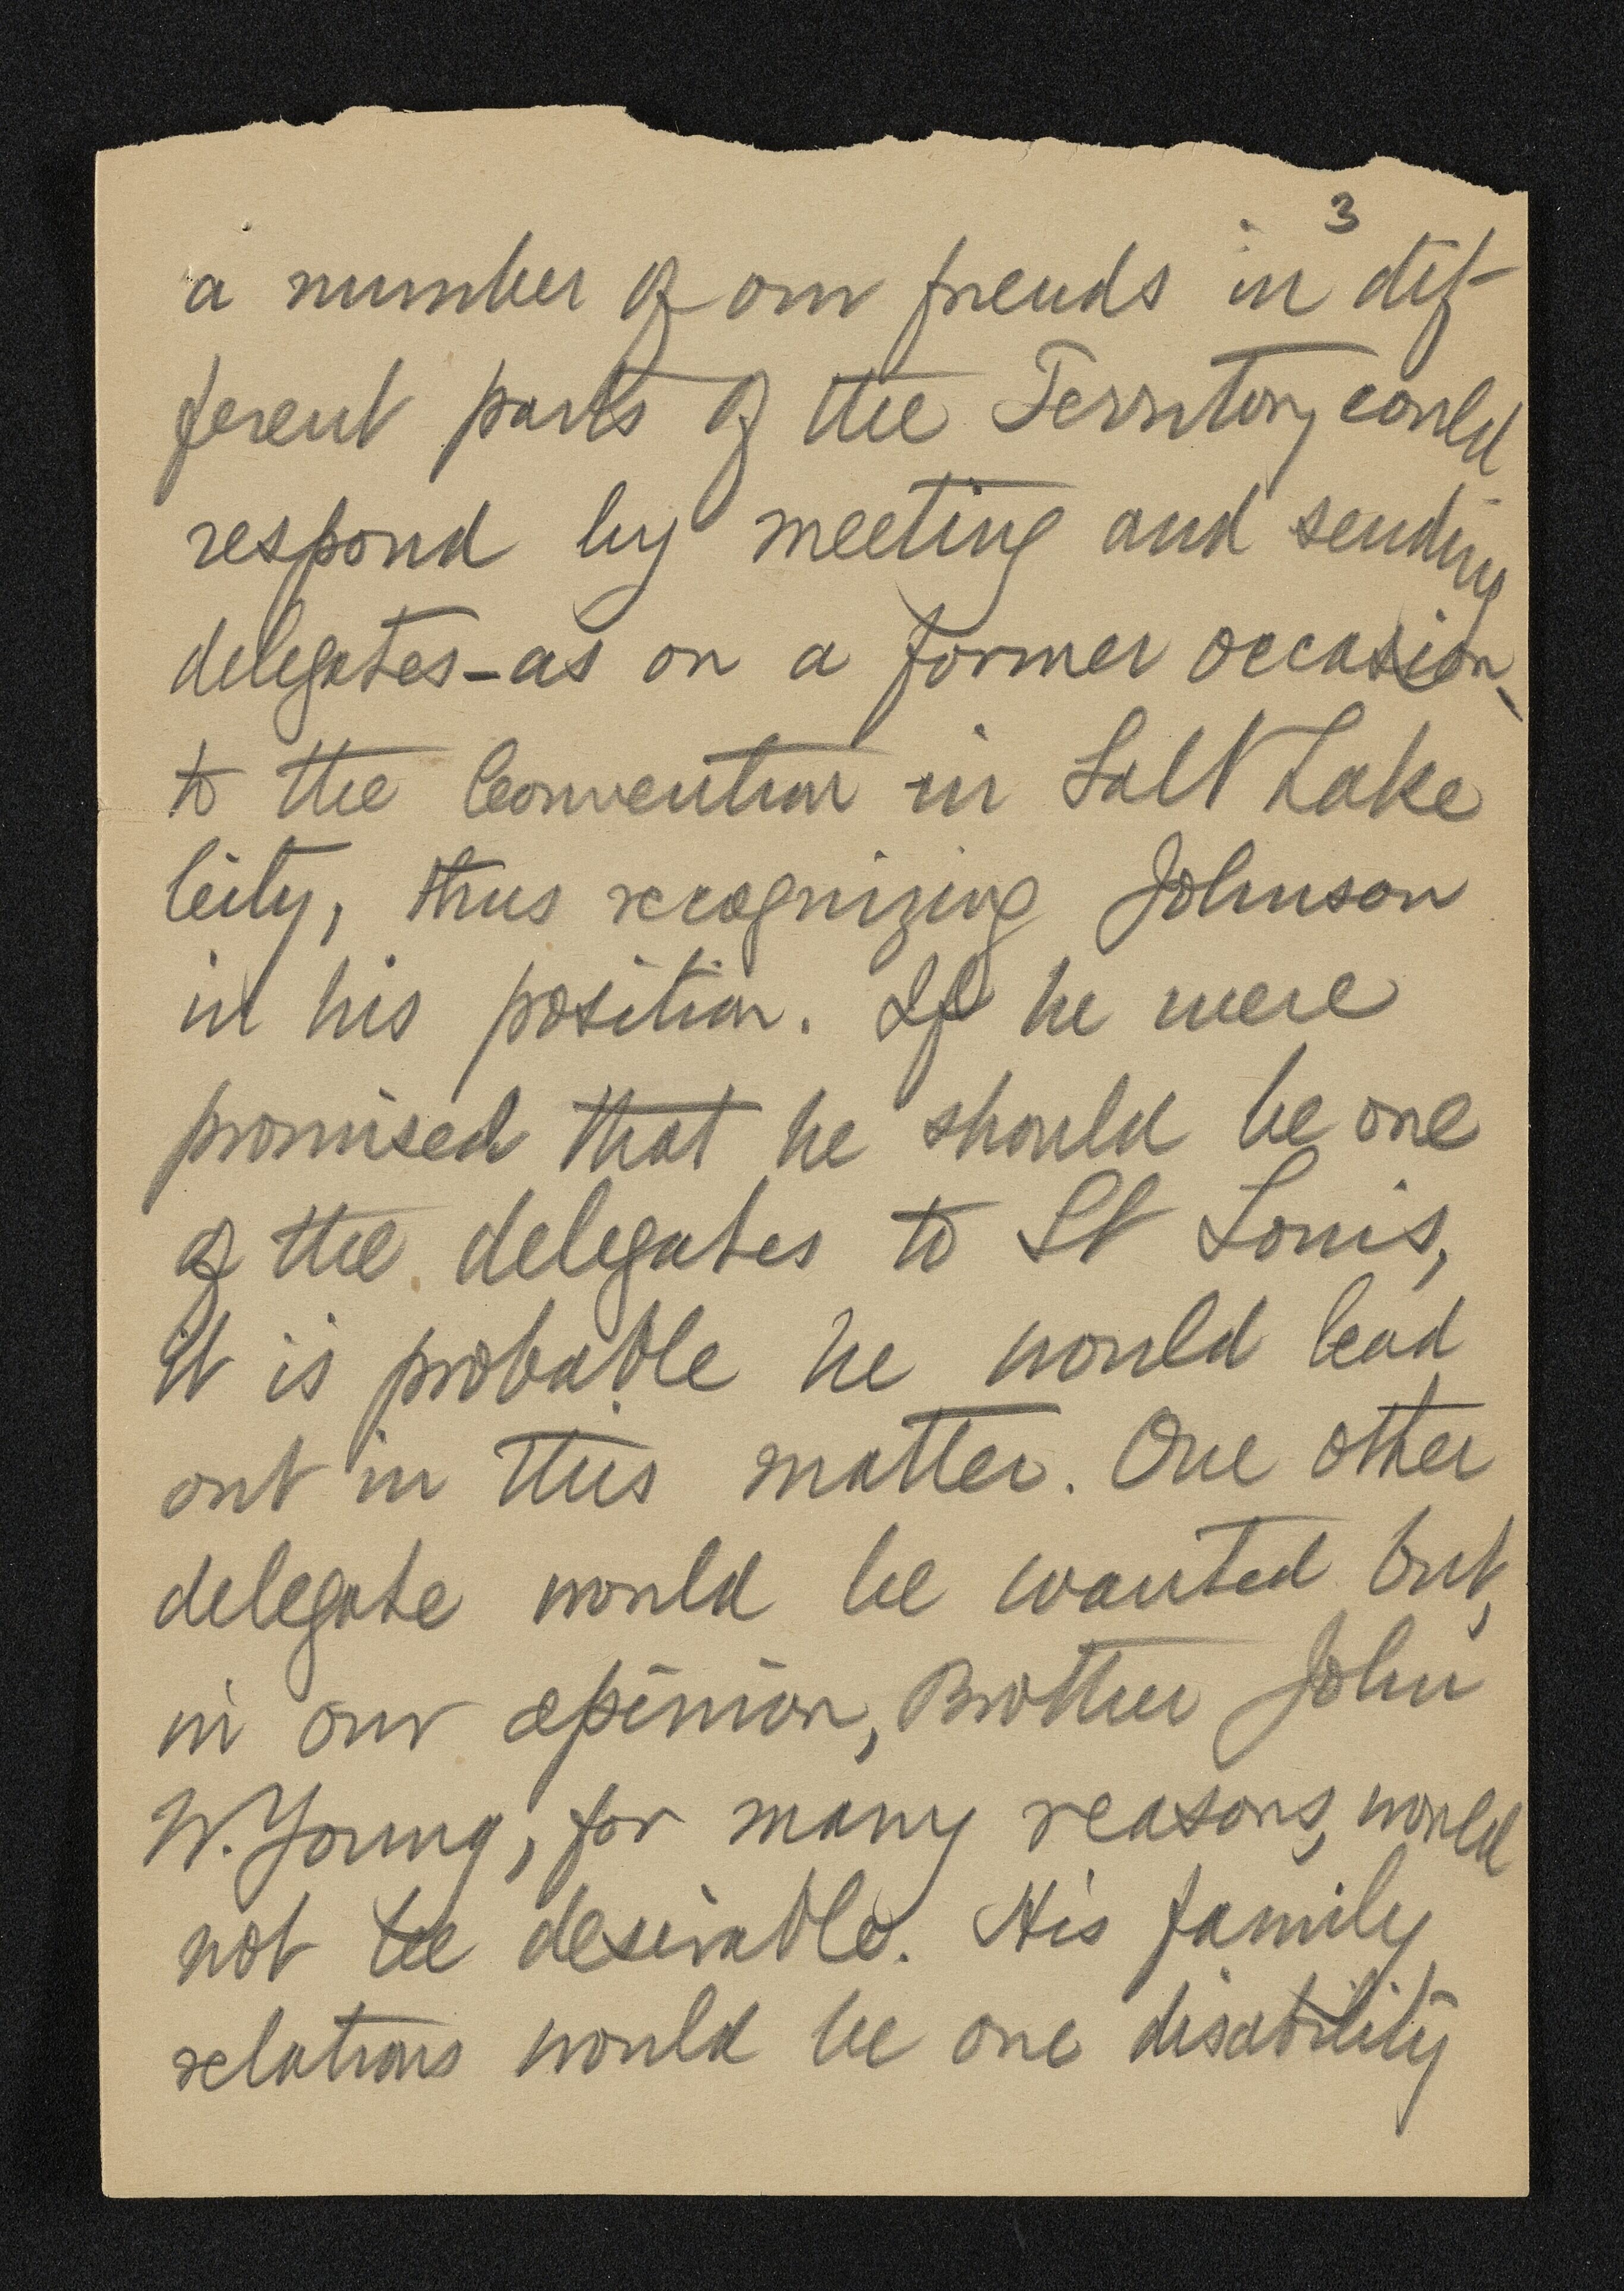 3
a number of our friends in dif-
ferent parts of the Territory could
respond by meeting and sending
delegates - as on a former occasion -
to the Convention in Salt Lake
City, thus recognizing Johnson
in his position. If he were
promised that he should be one
of the delegates to St Louis,
it is probable he would lead
out in this matter. One other
delegate would be wanted but,
in our opinion, Brother John
W. Young, for many reasons, would
not be desirable. His family
relations would be one disability